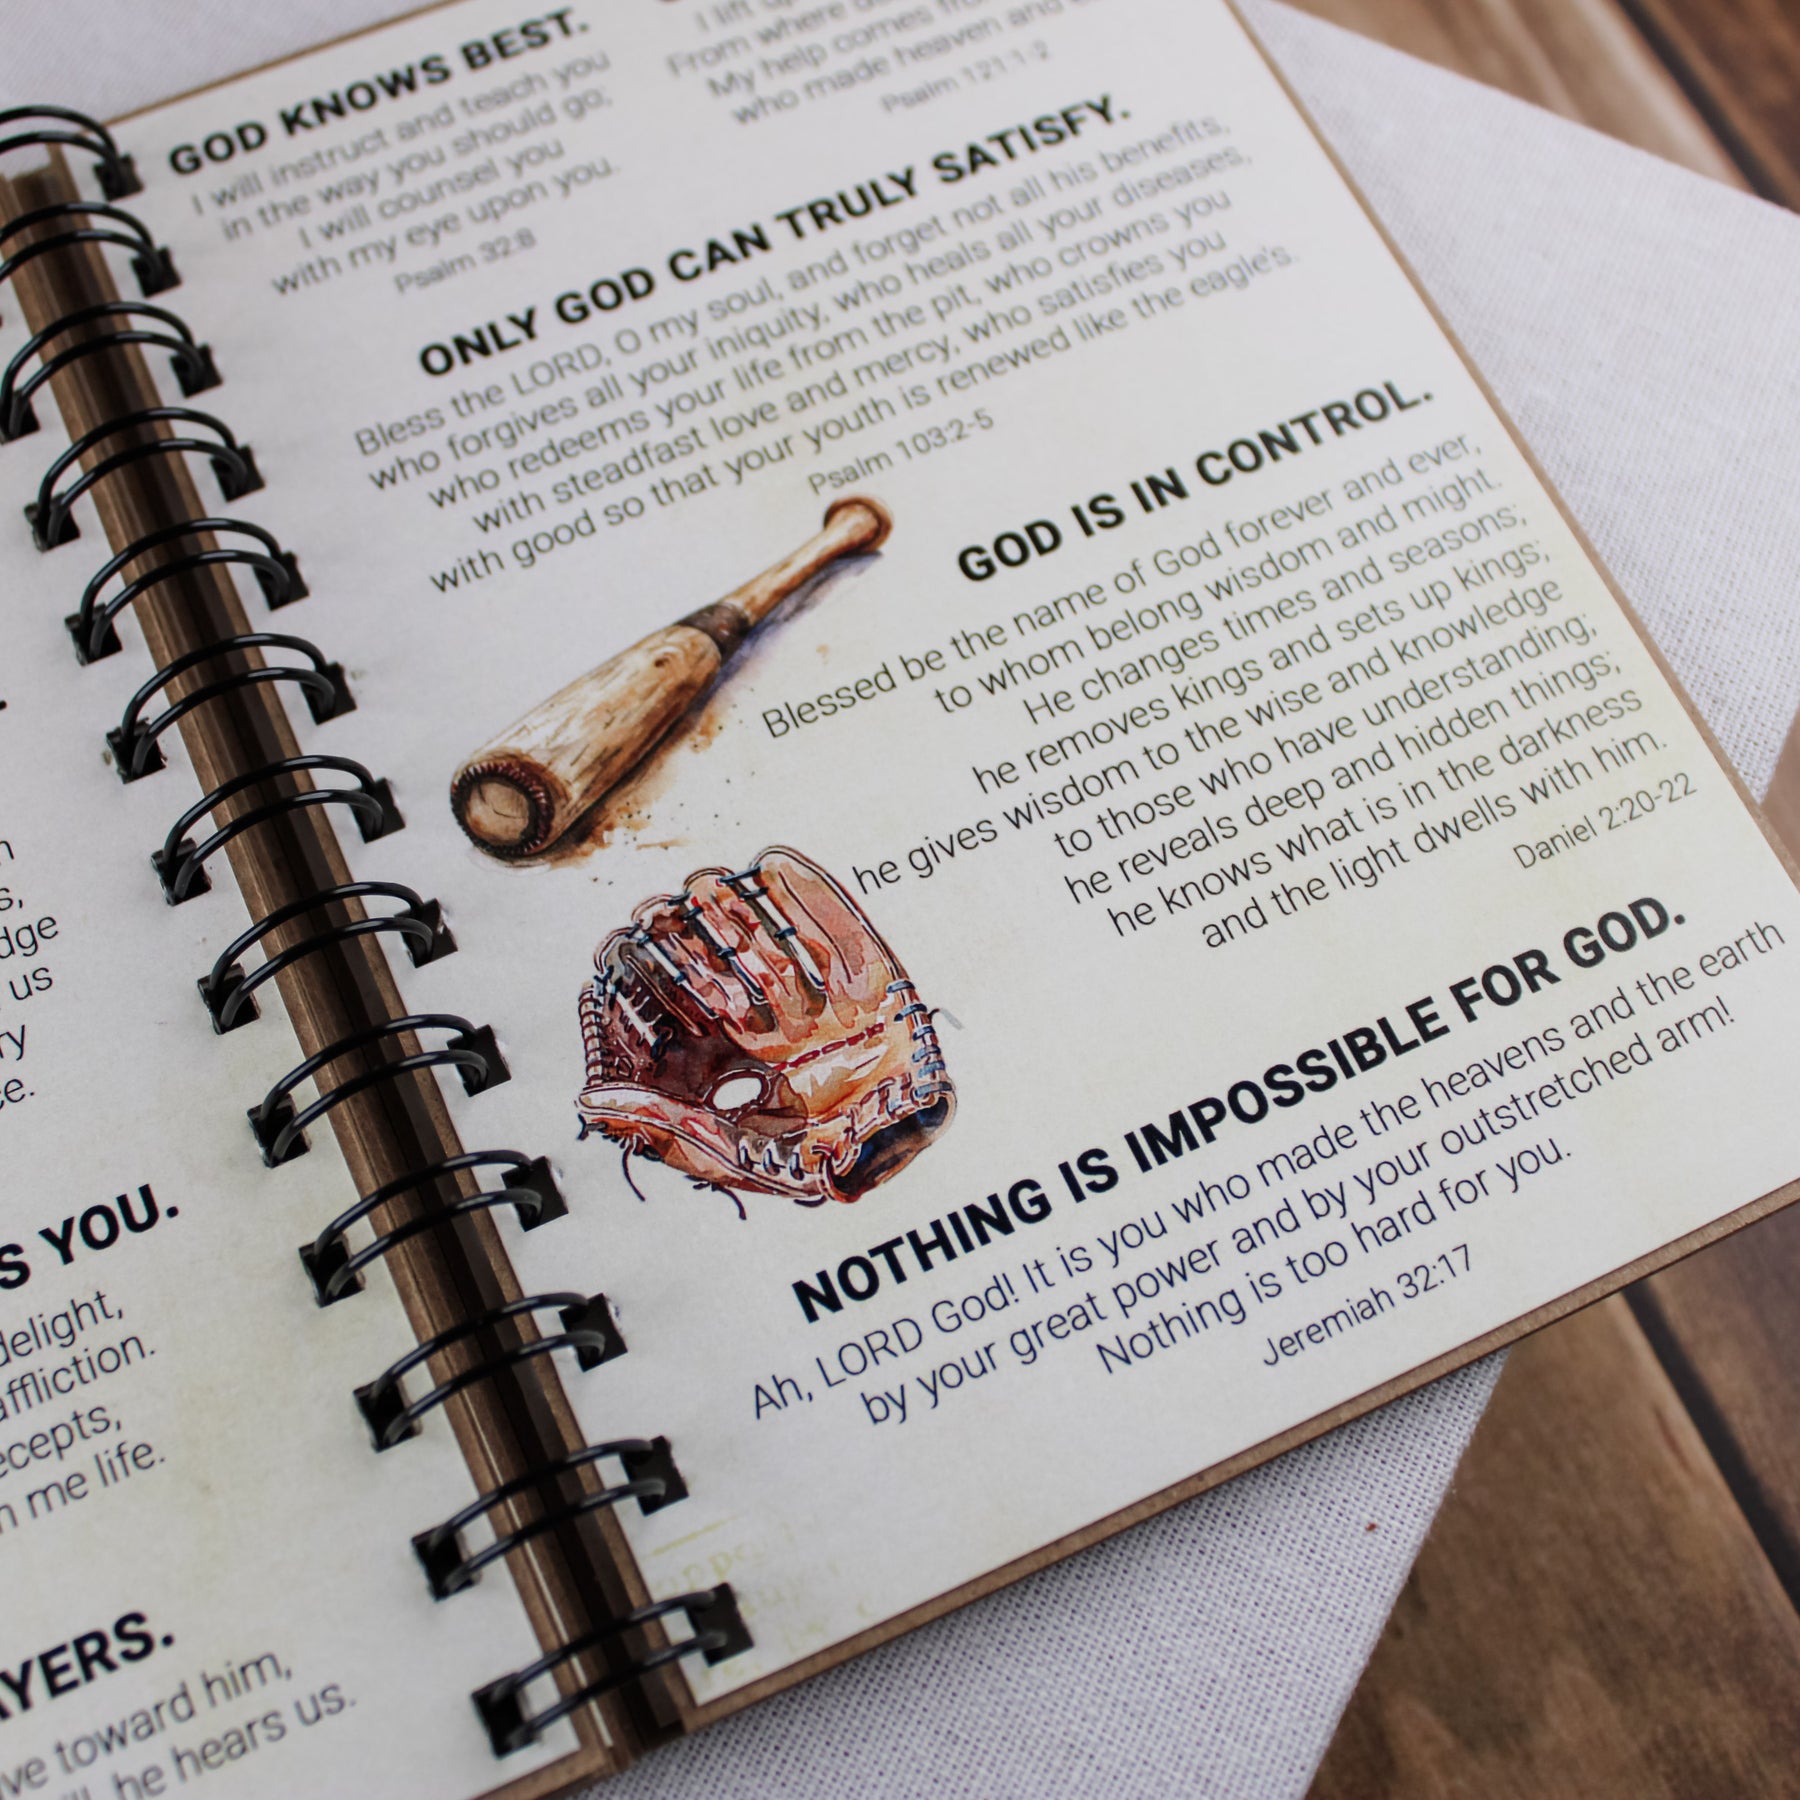 dge
us
ry
ce.
S YOU.
delight,
affliction.
ecepts,
me life.
AYERS.
ve toward him,
he hears us.
GOD KNOWS BEST.
I will instruct and teach you
in the way you should go;
I will counsel you
with my eye upon you.
Psalm 32:8
I lift up
From where
My help comes
who made heaven and
Psalm 121:1-2
ONLY GOD CAN TRULY SATISFY.
Bless the LORD, O my soul, and forget not all his benefits,
who forgives all your iniquity, who heals all your diseases,
who redeems your life from the pit, who crowns you
with steadfast love and mercy, who satisfies you
with good so that your youth is renewed like the eagle's.
Psalm 103:2-5
GOD IS IN CONTROL.
Blessed be the name of God forever and ever,
to whom belong wisdom and might.
He changes times and seasons;
he removes kings and sets up kings;
he gives wisdom to the wise and knowledge
to those who have understanding;
he reveals deep and hidden things;
he knows what is in the darkness
and the light dwells with him.
Daniel 2:20-22
NOTHING IS IMPOSSIBLE FOR GOD.
Ah, LORD God! It is you who made the heavens and the earth
by your great power and by your outstretched arm!
Nothing is too hard for you.
Jeremiah 32:17